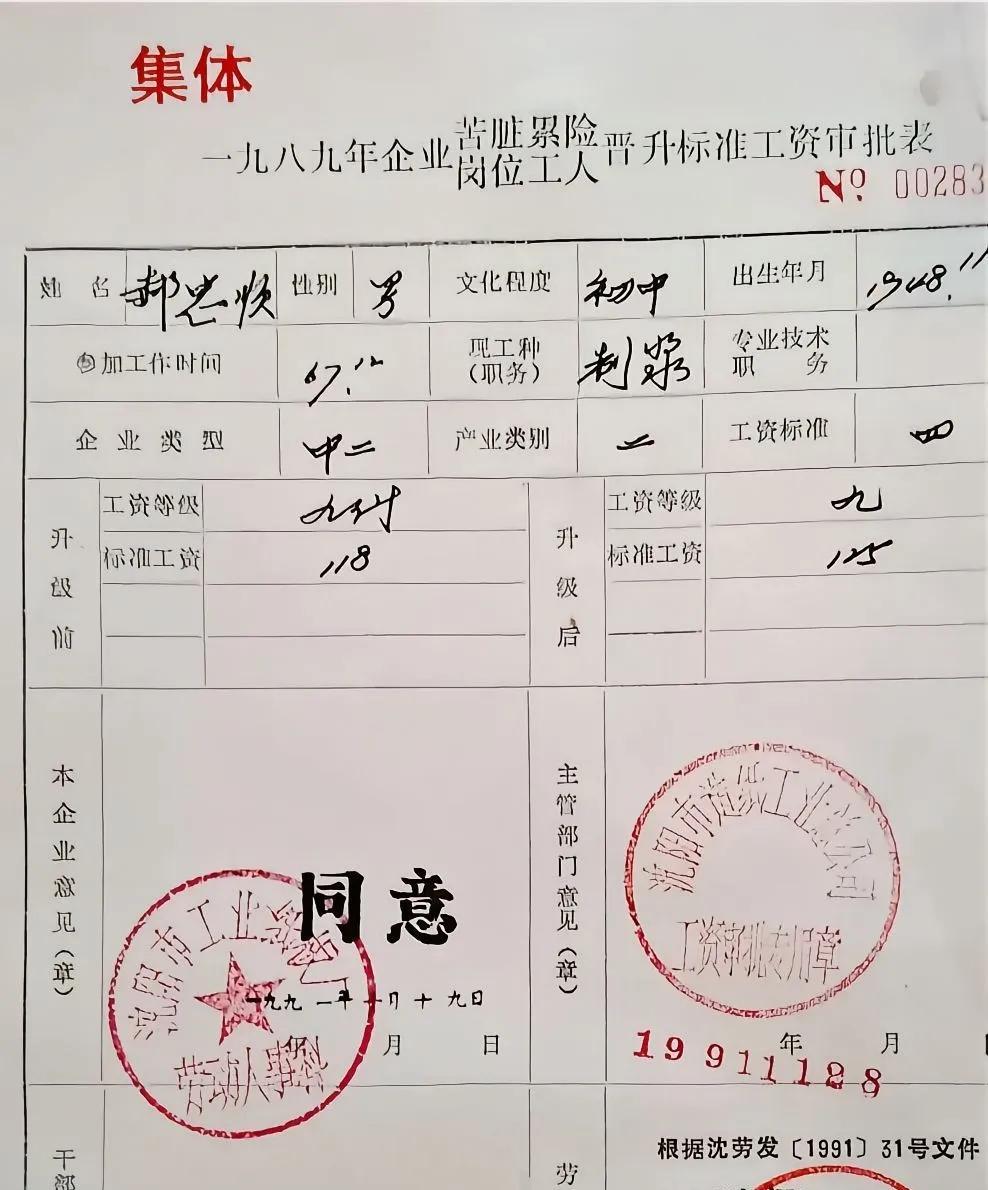 集体
一九八九年企业苦脏累险岗位工人晋升标准工资审批表
No. 00283
姓名 郝忠顺 性别 男 文化程度 初中 出生年月 1948.11
参加工作时间 67.12 现工种（职务） 制浆 专业技术职务
企业类型 中二 产业类别 二 工资标准 四
升级前 工资等级 标准工资 118
升级后 工资等级 九 标准工资 125
本企业意见（章）
同意
一九九一年一月十九日
年 月 日
沈阳市工业
劳动人事科
主管部门意见（章）
沈阳市造纸工业总公司
工资审批专用章
年 月
19911128
根据沈劳发〔1991〕31号文件
干部
劳